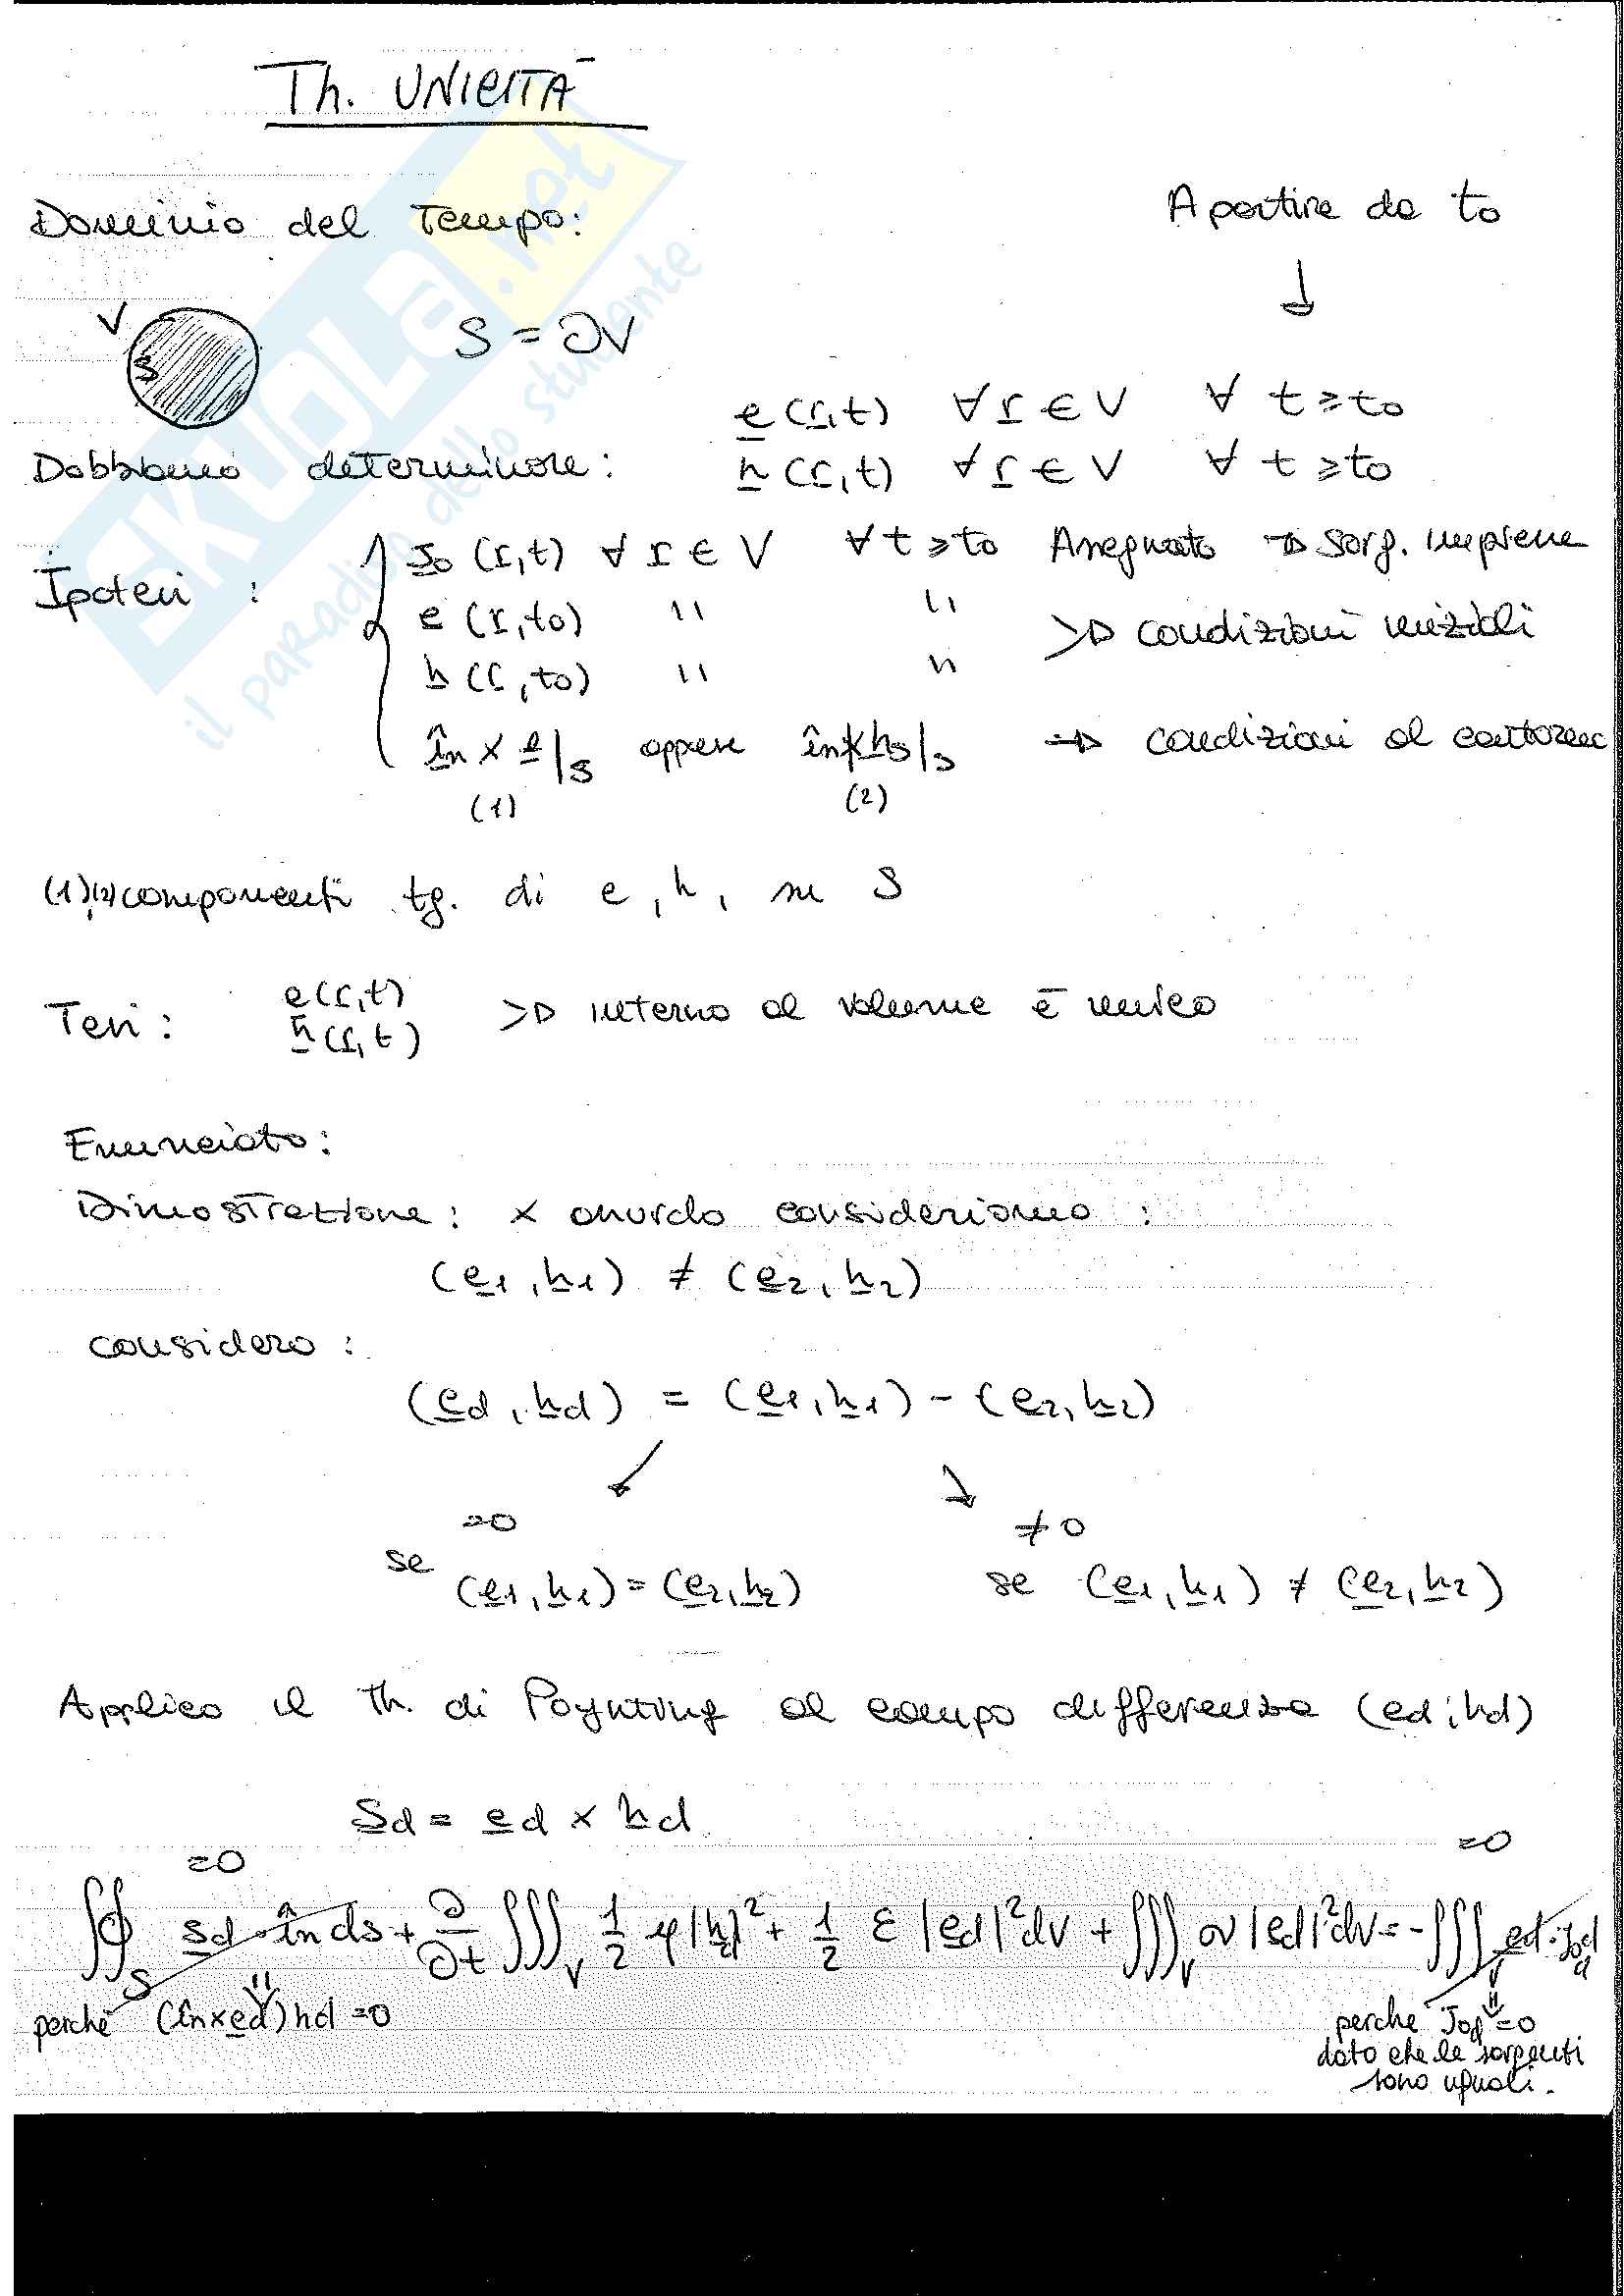 Th. UNICITÀ
Dominio del Tempo:
A partire da to
V
S
S = ∂V
e(r,t) ∀ r ∈ V ∀ t ≥ to
Dobbiamo determinare: h(r,t) ∀ r ∈ V ∀ t ≥ to
Ipotesi : { Jo (r,t) ∀ r ∈ V ∀ t ≥ to Assegnato → sorg. impresse
e (r,to) " " > condizioni iniziali
h (r,to) " "
în × e|s oppure în × hs|s → condizioni al contorno
(1) (2)
(1),(2) componenti tg. di e, h, su S
Tesi: e(r,t) h(r,t) > interno al volume è unico
Enunciato:
Dimostrazione: x assurdo consideriamo :
(e1, h1) ≠ (e2, h2)
considero :
(ed, hd) = (e1, h1) - (e2, h2)
=0 ≠0
se (e1, h1) = (e2, h2) se (e1, h1) ≠ (e2, h2)
Applico il Th. di Poynting al campo differenza (ed; hd)
Sd = ed × hd
=0 =0
∯s Sd · în ds + ∂/∂t ∭v 1/2 μ|hd|² + 1/2 ε |ed|² dv + ∭v σ |ed|² dv = - ∭v ed · Jod
perchè (în×ed) hd =0
perchè Jod =0
dato che le sorgenti
sono uguali.
SKUOLA.net
il paradiso dello studente